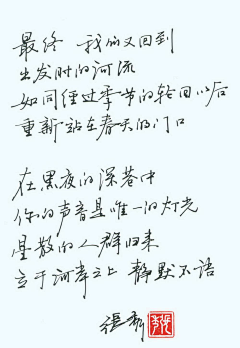 最终 我们又回到
出发时的河流
如同经过季节的轮回以后
重新站在春天的门口
在黑夜的深巷中
你的声音是唯一的灯光
星散的人群归来
立于河岸之上 静默不语
张新